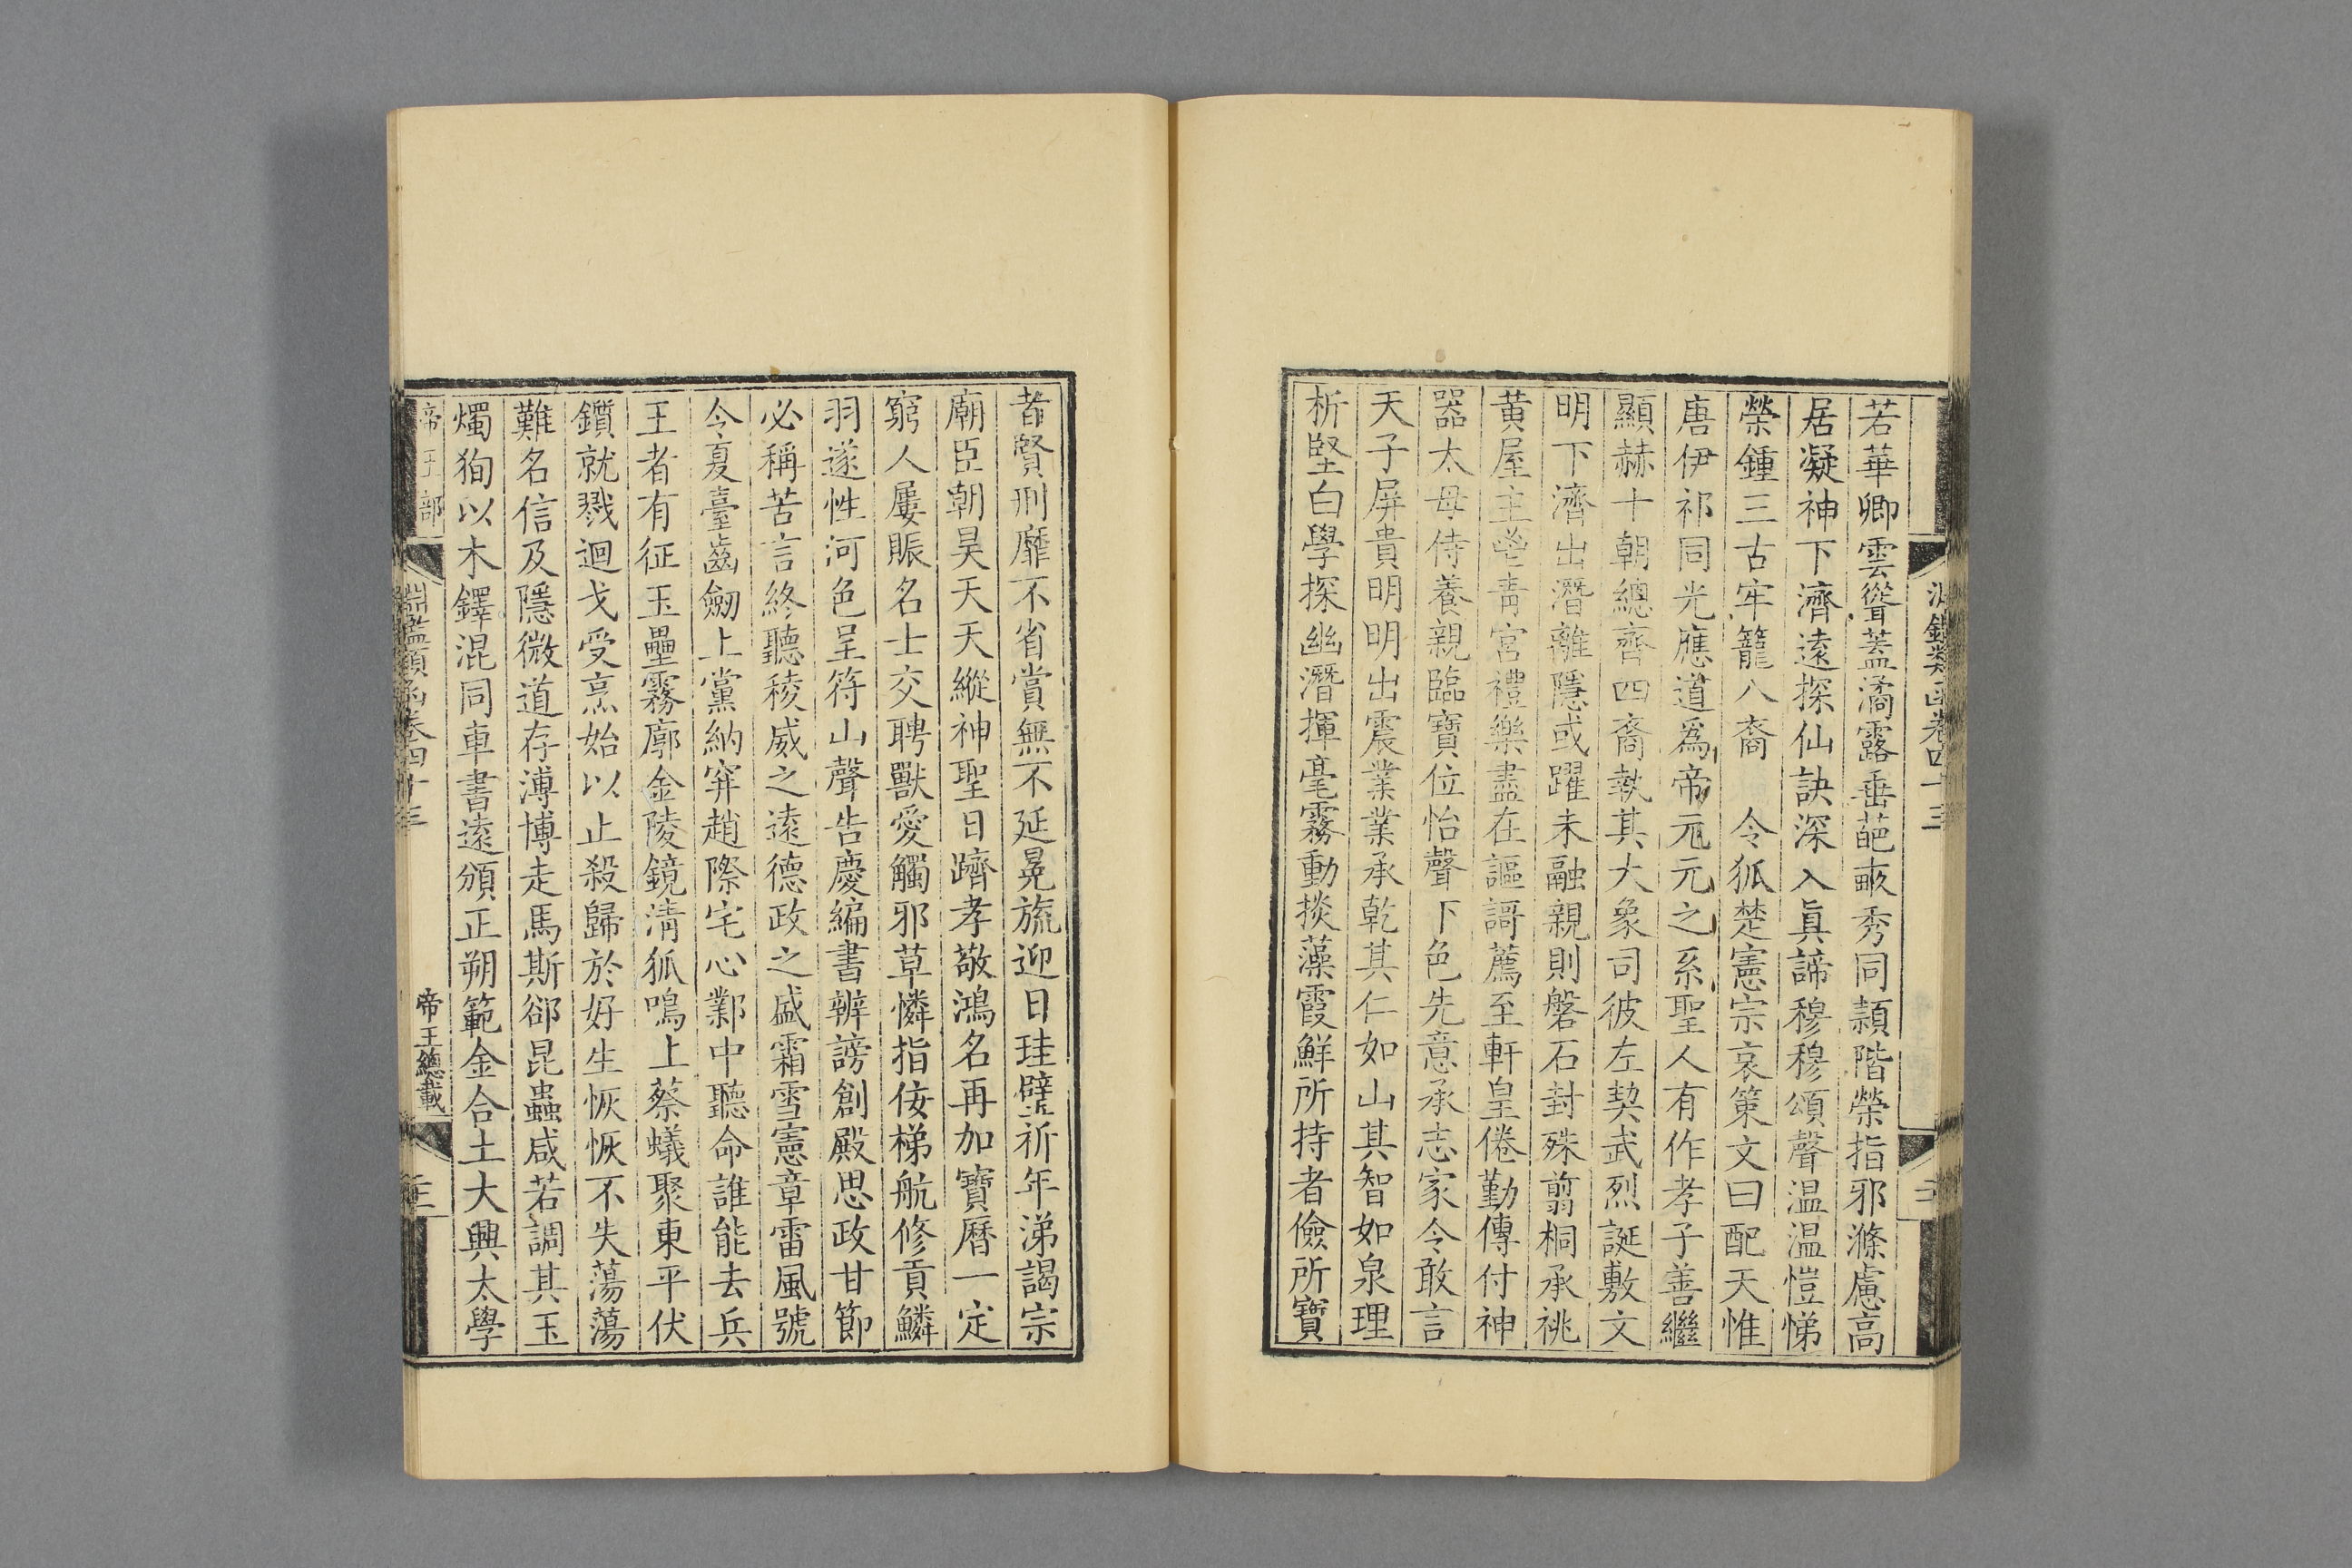 淵鑑類函卷四十三
若華卿雲聳蓋潏露垂葩畞秀同頴階榮指邪滌慮高
居凝神下濟遠探仙訣深入眞諦穆穆頌聲温温愷悌
榮鍾三古牢籠八裔　令狐楚憲宗哀策文曰配天惟
唐伊祁同光應道爲帝元元之系聖人有作孝子善繼
顯赫十朝總齊四裔執其大象司彼左契武烈誕敷文
明下濟出潛離隱或躍未融親則磐石封殊翦桐承祧
黄屋主鬯靑宮禮樂盡在謳謌薦至軒皇倦勤傳付神
器太母侍養親臨寶位怡聲下色先意承志家令敢言
天子屏貴明明出震業業承乾其仁如山其智如泉理
析堅白學探幽潛揮毫霧動掞藻霞鮮所持者儉所寶
者賢刑靡不省賞無不延晃旒迎日珪璧祈年涕謁宗
廟臣朝昊天天縱神聖日躋孝敬鴻名再加寶曆一定
窮人屢賑名士交聘獸愛觸邪草憐指佞梯航修貢鱗
羽遂性河色呈符山聲告慶編書辨謗創殿思政甘節
必稱苦言終聽稜威之遠德政之盛霜雪憲章雷風號
令夏臺齒劒上黨納穽趙際宅心鄴中聽命誰能去兵
王者有征玉壘霧廓金陵鏡清狐鳴上蔡蟻聚東平伏
鑕就戮迴戈受烹始以止殺歸於好生恢恢不失蕩蕩
難名信及隱微道存溥博走馬斯郤昆蟲咸若調其玉
燭狥以木鐸混同車書遠頒正朔範金合土大興太學
帝王部
淵鑑類函卷四十三
帝王總載